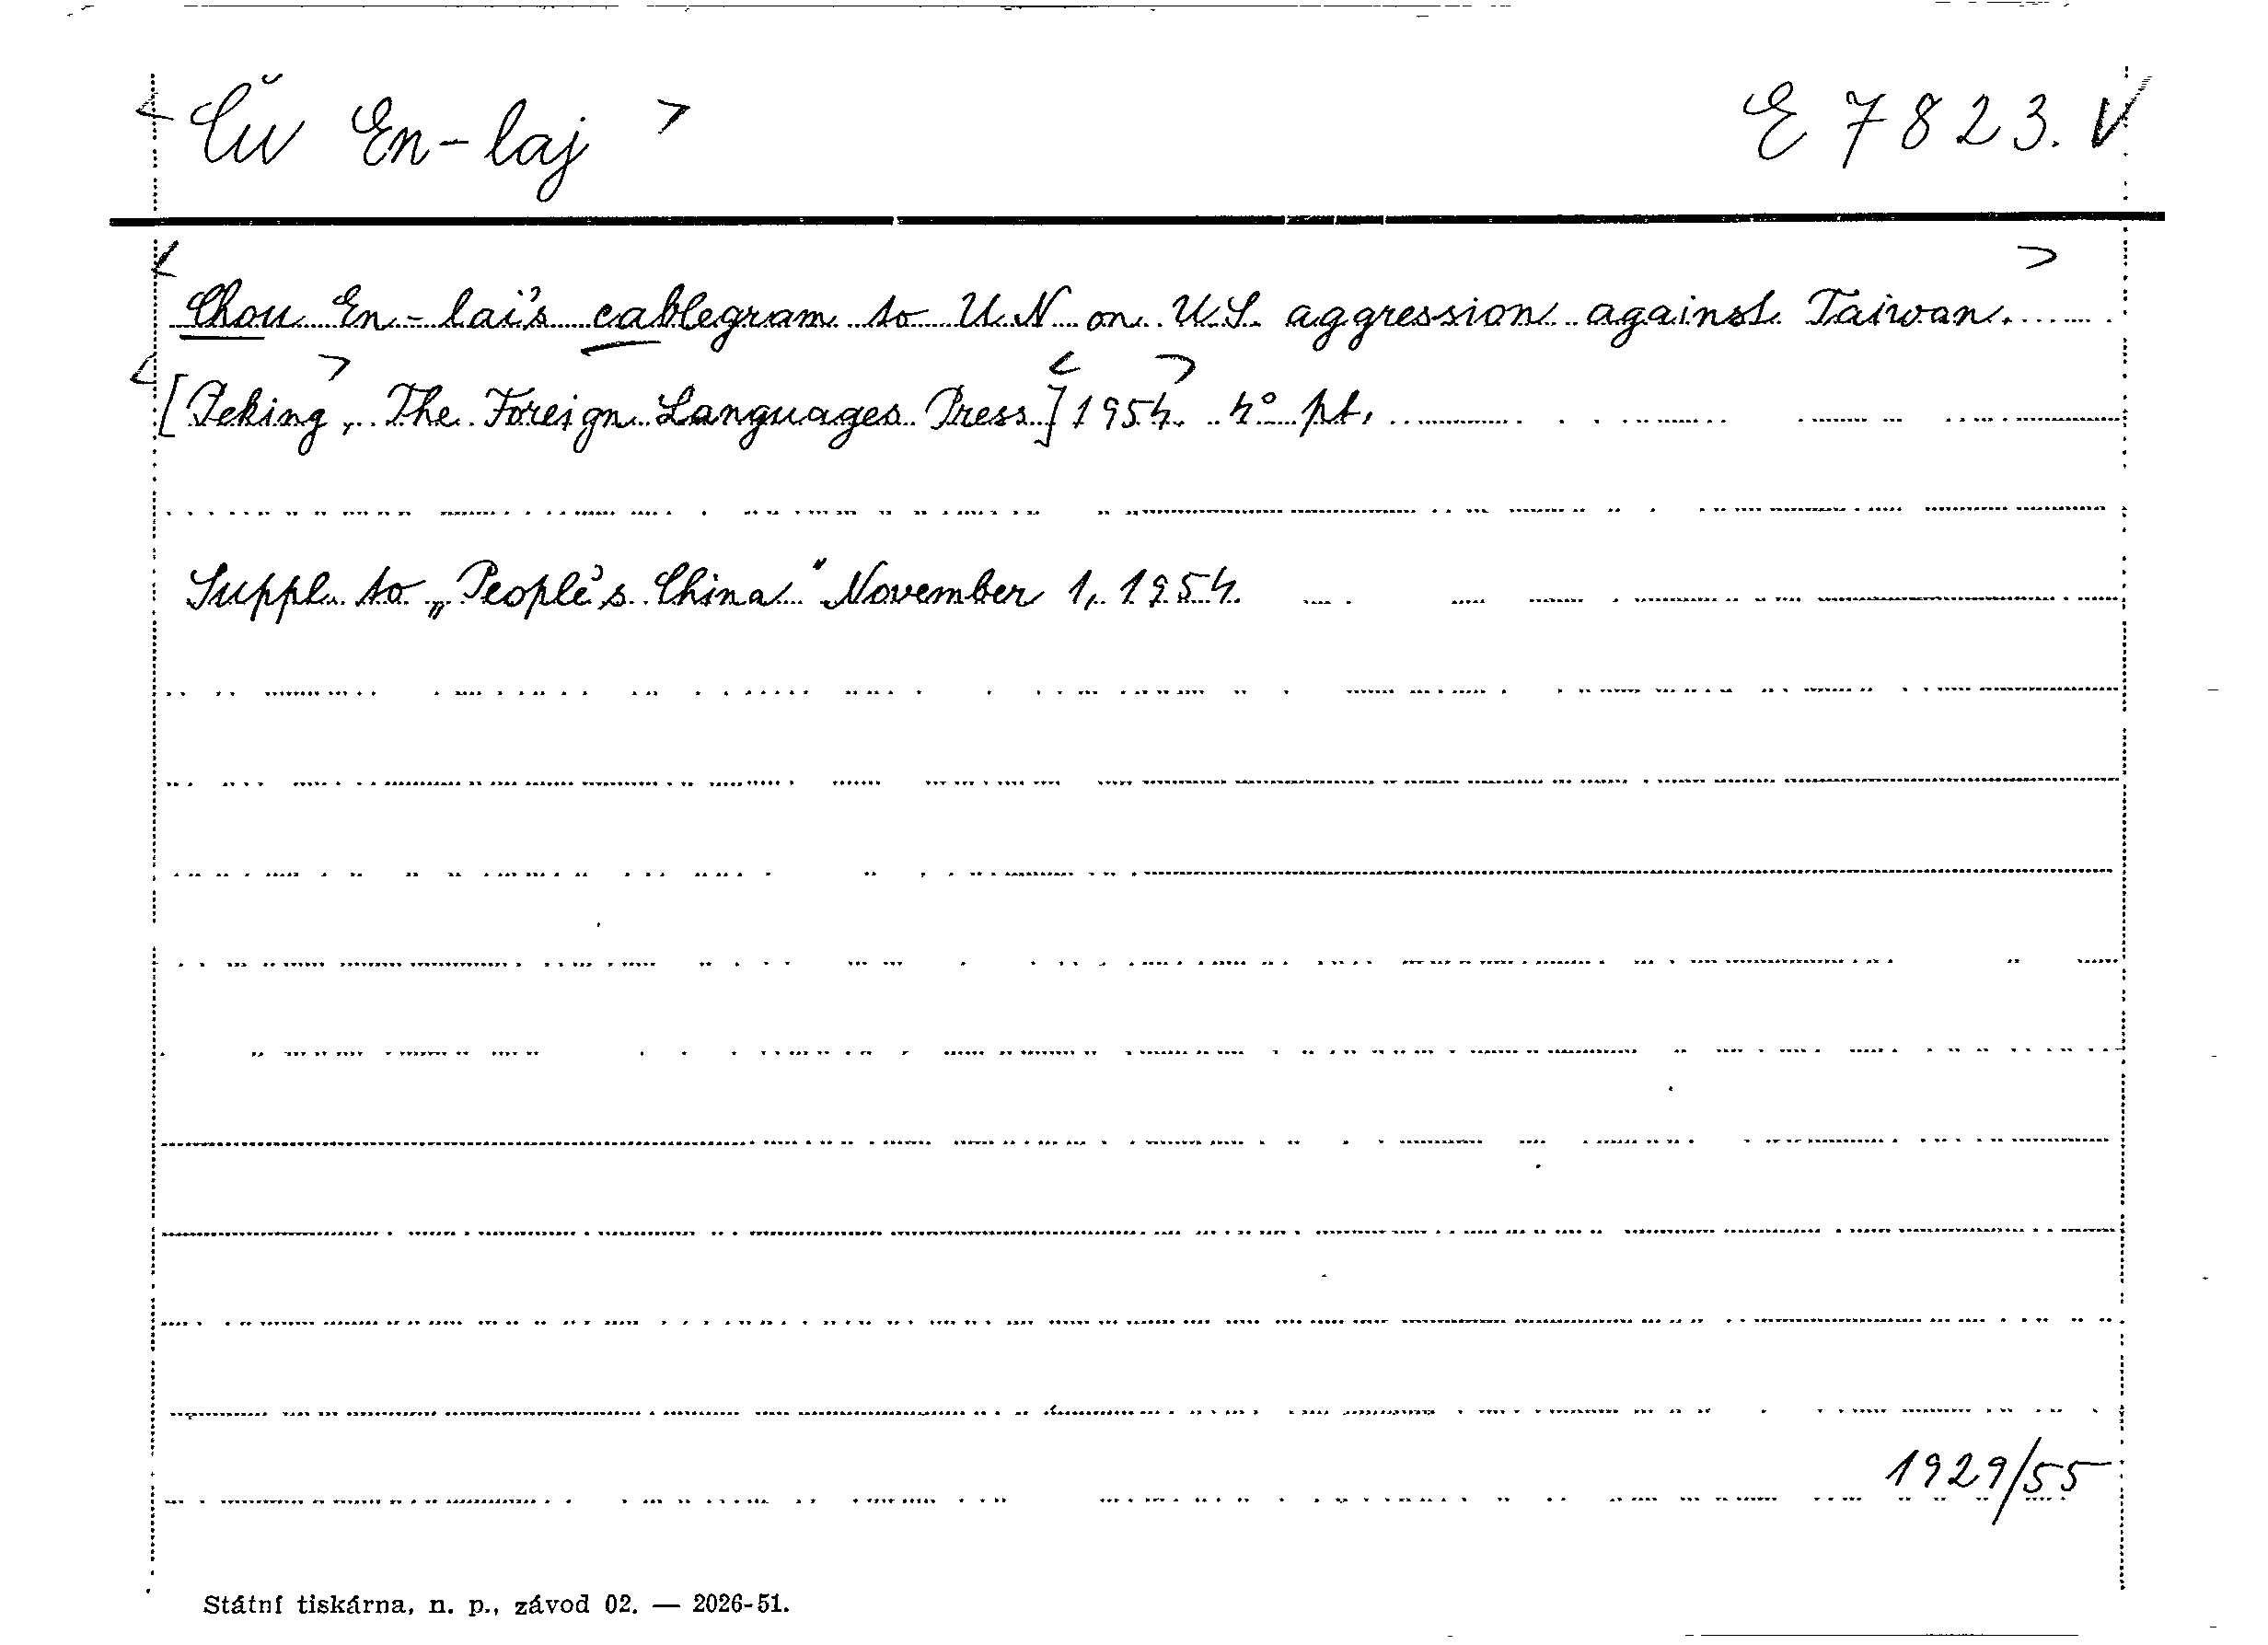 < Ču En-laj > E 7823. V
< Chou En-lai's cablegram to UN on US aggression against Taiwan. >
< [Peking >, The Foreign Languages Press] < 1954. > 4° pt.
Suppl. to „People's China" November 1, 1954.
1929/55
Státní tiskárna, n. p., závod 02. — 2026-51.